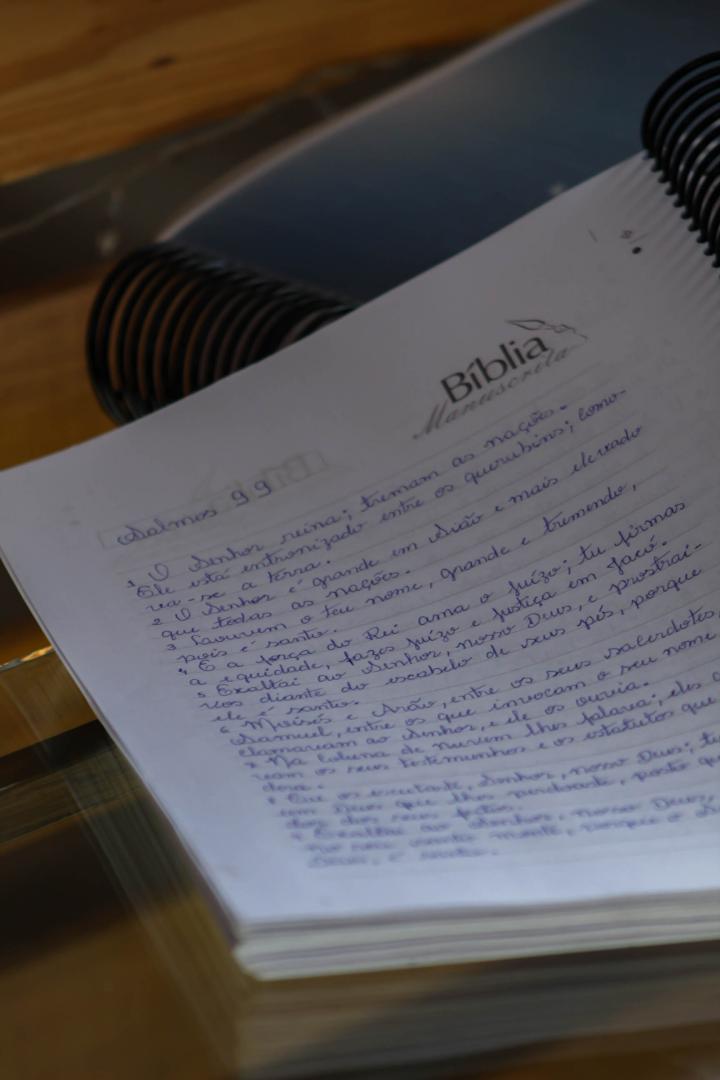 Bíblia
Manuscrita
Salmos 99
1 O Senhor reina; tremam as nações.
Ele está entronizado entre os querubins; como-
va-se a terra.
2 O Senhor é grande em Sião e mais elevado
que todas as nações.
3 Louvem o teu nome, grande e tremendo,
pois é santo.
4 E a força do Rei ama o juízo; tu firmas
a equidade, fazes juízo e justiça em Jacó.
5 Exaltai ao Senhor, nosso Deus, e prostrai-
vos diante do escabelo de seus pés, porque
ele é santo.
6 Moisés e Arão, entre os seus sacerdotes,
Samuel, entre os que invocam o seu nome
clamavam ao Senhor, e ele os ouvia.
7 Na coluna de nuvem lhes falava; eles
vam os seus testemunhos e os estatutos que
dera.
8 Tu os escutaste, Senhor, nosso Deus; tu
um Deus que lhes perdoaste, posto
dos seus feitos.
9 Exaltai ao Senhor, nosso Deus,
no seu santo monte, porque o
Deus, é santo.